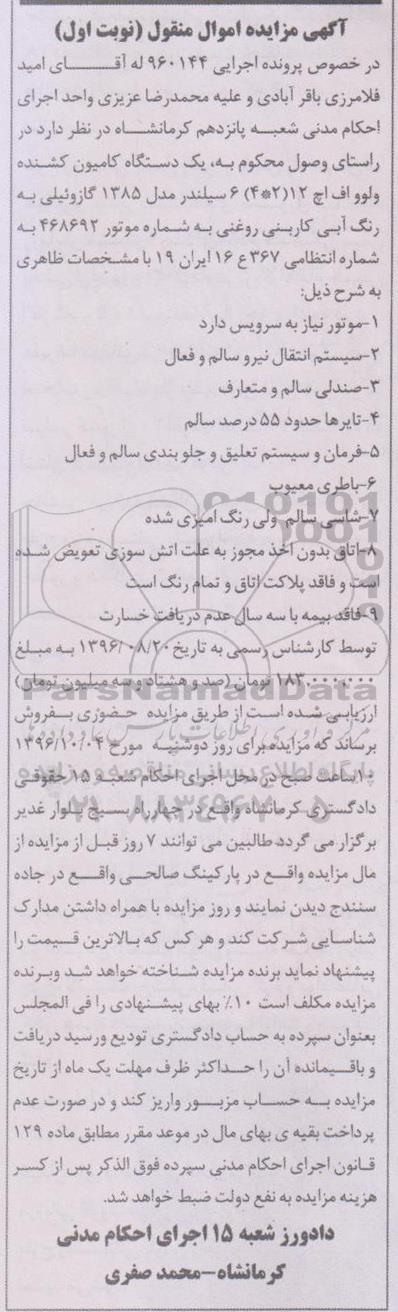 آگهی مزایده اموال منقول (نوبت اول)
در خصوص پرونده اجرایی ۹۶۰۱۴۴ له آقای امید
فلامرزی باقر آبادی و علیه محمدرضا عزیزی واحد اجرای
احکام مدنی شعبه پانزدهم کرمانشاه در نظر دارد در
راستای وصول محکوم به، یک دستگاه کامیون کشنده
ولوو اف اچ ۱۲(۲*۴) ۶ سیلندر مدل ۱۳۸۵ گازوئیلی به
رنگ آبی کاربنی روغنی به شماره موتور ۴۶۸۶۹۲ به
شماره انتظامی ۳۶۷ع ۱۶ ایران ۱۹ با مشخصات ظاهری
به شرح ذیل:
۱-موتور نیاز به سرویس دارد
۲-سیستم انتقال نیرو سالم و فعال
۳-صندلی سالم و متعارف
۴-تایرها حدود ۵۵ درصد سالم
۵-فرمان و سیستم تعلیق و جلو بندی سالم و فعال
۶-باطری معیوب
۷-شاسی سالم ولی رنگ آمیزی شده
۸-اتاق بدون اخذ مجوز به علت اتش سوزی تعویض شده
است و فاقد پلاکت اتاق و تمام رنگ است
۹-فاقد بیمه با سه سال عدم دریافت خسارت
توسط کارشناس رسمی به تاریخ ۱۳۹۶/۰۸/۲۰ به مبلغ
۱۸۳,۰۰۰,۰۰۰ تومان (صد و هشتاد و سه میلیون تومان)
ارزیابی شده است از طریق مزایده حضوری بفروش
برساند که مزایده برای روز دوشنبه مورخ ۱۳۹۶/۱۰/۰۴
۱۰ساعت صبح در محل اجرای احکام شعبه ۱۵ حقوقی
دادگستری کرمانشاه واقع در چهارراه بسیج بلوار غدیر
برگزار می گردد طالبین می توانند ۷ روز قبل از مزایده از
مال مزایده واقع در پارکینگ صالحی واقع در جاده
سنندج دیدن نمایند و روز مزایده با همراه داشتن مدارک
شناسایی شرکت کند و هر کس که بالاترین قیمت را
پیشنهاد نماید برنده مزایده شناخته خواهد شد وبرنده
مزایده مکلف است ۱۰٪ بهای پیشنهادی را فی المجلس
بعنوان سپرده به حساب دادگستری تودیع ورسید دریافت
و باقیمانده آن را حداکثر ظرف مهلت یک ماه از تاریخ
مزایده به حساب مزبور واریز کند و در صورت عدم
پرداخت بقیه ی بهای مال در موعد مقرر مطابق ماده ۱۲۹
قانون اجرای احکام مدنی سپرده فوق الذکر پس از کسر
هزینه مزایده به نفع دولت ضبط خواهد شد.
دادورز شعبه ۱۵ اجرای احکام مدنی
کرمانشاه-محمد صفری
ParsNamadData